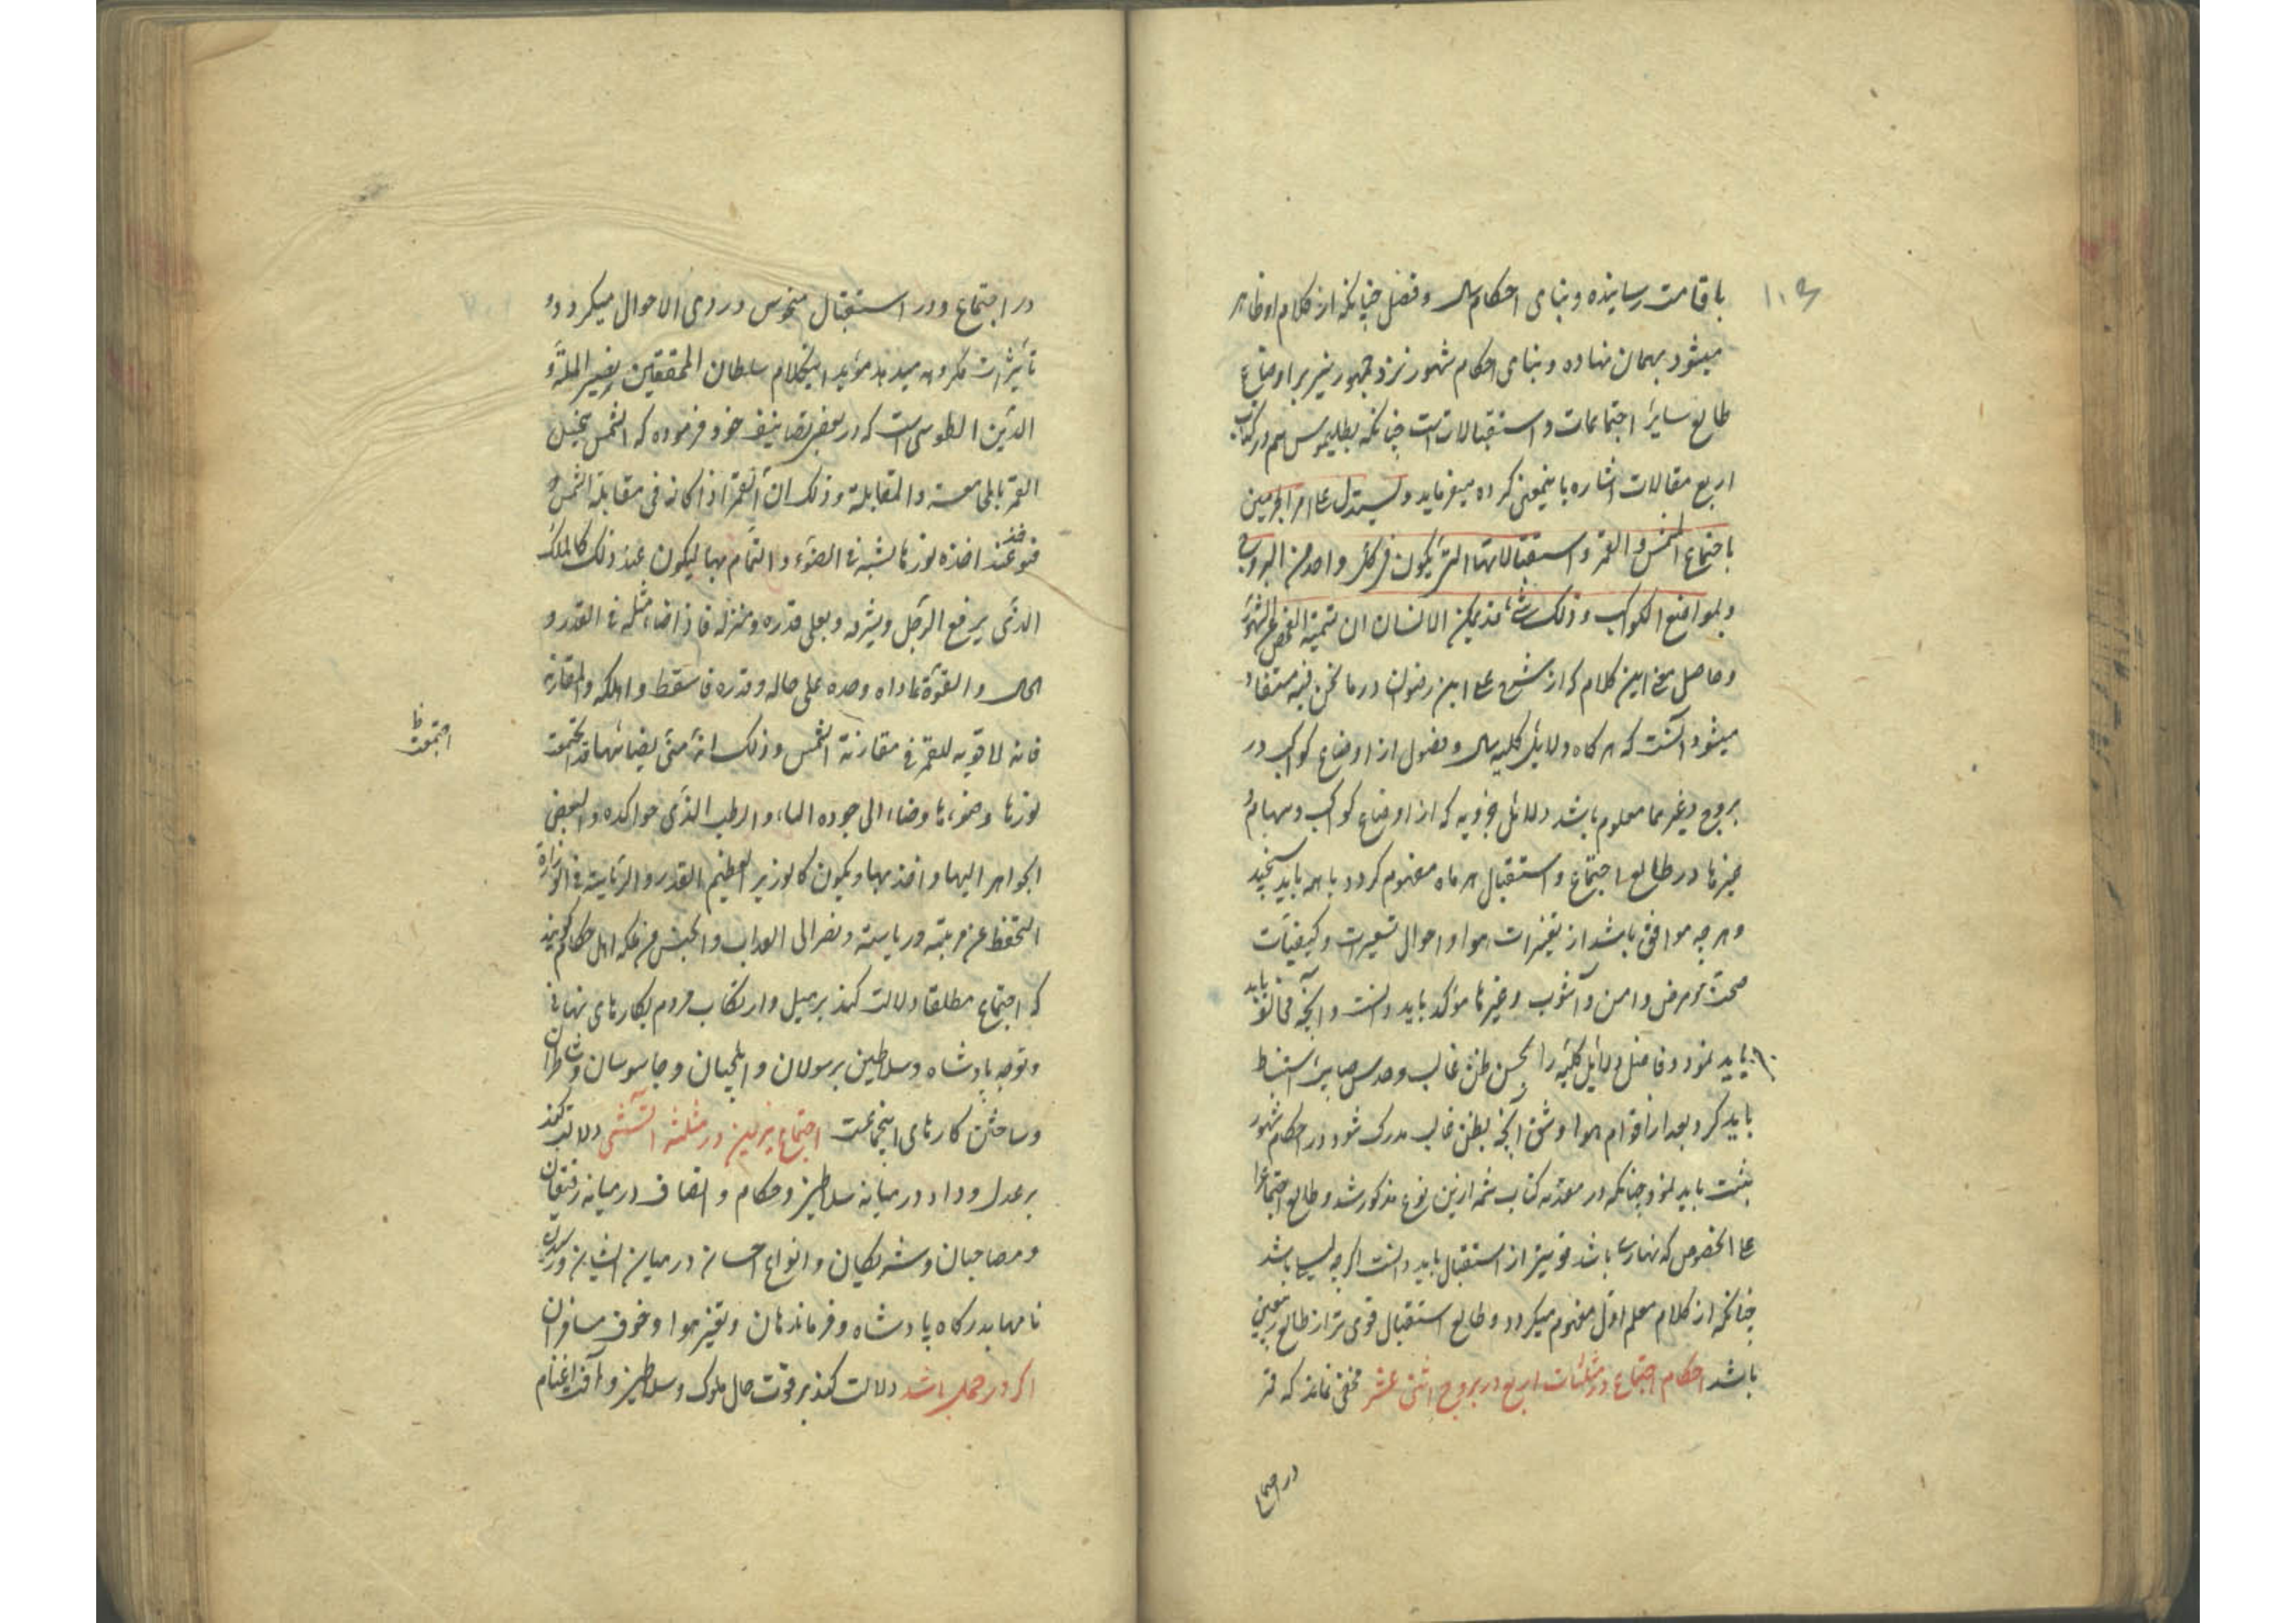 باقامت رسانیده و بنای احکام سال و فصل چنانکه از کلام او ظاهر
میشود بهمان نهاده و بنای احکام شهور نزد جمهور نیز بر اوضاع
طالع سایر اجتماعات و استقبالاتست چنانکه بطلیموس هم در کتاب
اربع مقالات اشاره باینمعنی کرده میفرماید و لیستدل علی امر الجرمین
باجتماع الشمس و القمر و استقبالاتها التی یکون فی کل واحد من البروج
و بمواضع الکواکب و ذلک قد یمکن الانسان ان
و حاصل معنی این کلام که از شرح علی ابن رضوان در ما نحن فیه مستفاد
میشود آنست که هر کاه دلایل کلیه سال و فصول از اوضاع کواکب در
بروج و غیرهما معلوم باشد دلائل جزویه که از اوضاع کواکب و سهام و
غیرها در طالع اجتماع و استقبال هر ماه مفهوم کردد با همه باید سنجید
و هر چه موافق باشد از تغیرات هوا و احوال تسعیرات و کیفیات
صحت و مرض و امن و آشوب و غیرها مؤکد باید دانست و آنچه مخالف باید
باید نمود و فاضل دلایل کلیه را بحسن ظن غالب و حدس صایب استنباط
باید کرد و بعد از اقوام هوا و شق آنچه بظن غالب مدرک شود در احکام شهور
ثبت باید نمود چنانکه در مقدمه کتاب ثمه ازین نوع مذکور شد و طالع اجتماع را
علی الخصوص که نهاری باشد قویتر از استقبال باید دانست اکر چه لیلی باشد
چنانکه از کلام معلم اول مفهوم میکردد و طالع استقبال قوی تر از طالع تربیعین
باشد احکام اجتماع در مثلثات اربع در بروج اثنی عشر مخفی نماند که قمر
در اجتماع
در اجتماع و در استقبال منحوس و ردی الاحوال میکردد و
تأثیرات مکروهه میدهد مؤید اینکلام سلطان المحققین نصیر الملة و
الدین الطوسی است که در بعض تصانیف خود فرموده که الشمس
القمر و المقابلة و ذلک ان القمر اذا کان فی مقابلة الشمس
فهو عند اخذه نورها لشبه فی الضوء و التمام بها لیکون عند ذلک کالملک
الذی یرفع الرجل و یشرفه و یعلی قدره و منزله فاذا ضاء مثله فی القدر و
الحال و القوة عاداه وحده علی حاله و قدره فاسقط و اهلکه و المقارنة
فانه لا قوة للقمر فی مقارنة الشمس و ذلک انه متی بضیائها قد اجتمعت
اجتمعت ظ
نورها و ضوءها و ضاء الی جوده الماء و الرطب الذی
الجواهر الیها و اخذ بها و یکون کالوزیر العظیم القدر و الریاسة فی الوزارة
التحفظ عن مرتبته و ریاسته و نصر الی العذاب و الحبس اهل احکام کویند
که اجتماع مطلقا دلالت کند بر میل و ارتکاب مردم بکارهای نهانی
و توجه پادشاه و سلاطین برسولان و ایلچیان و جاسوسان و شاطران
و ساختن کارهای اینجماعت اجتماع نیرین در مثلثه آتشی دلالت کند
بر عدل و داد در میانه سلاطین و حکام و انصاف در میانه رفیقان
و مصاحبان و شریکان و انواع احسان در میان ایشان و رسیدن
نامها بدرکاه پادشاه و فرماندهان و تغیر هوا و خوف مسافران
اکر در حمل باشد دلالت کند بر قوت حال ملوک و سلاطین و آفت اغنام